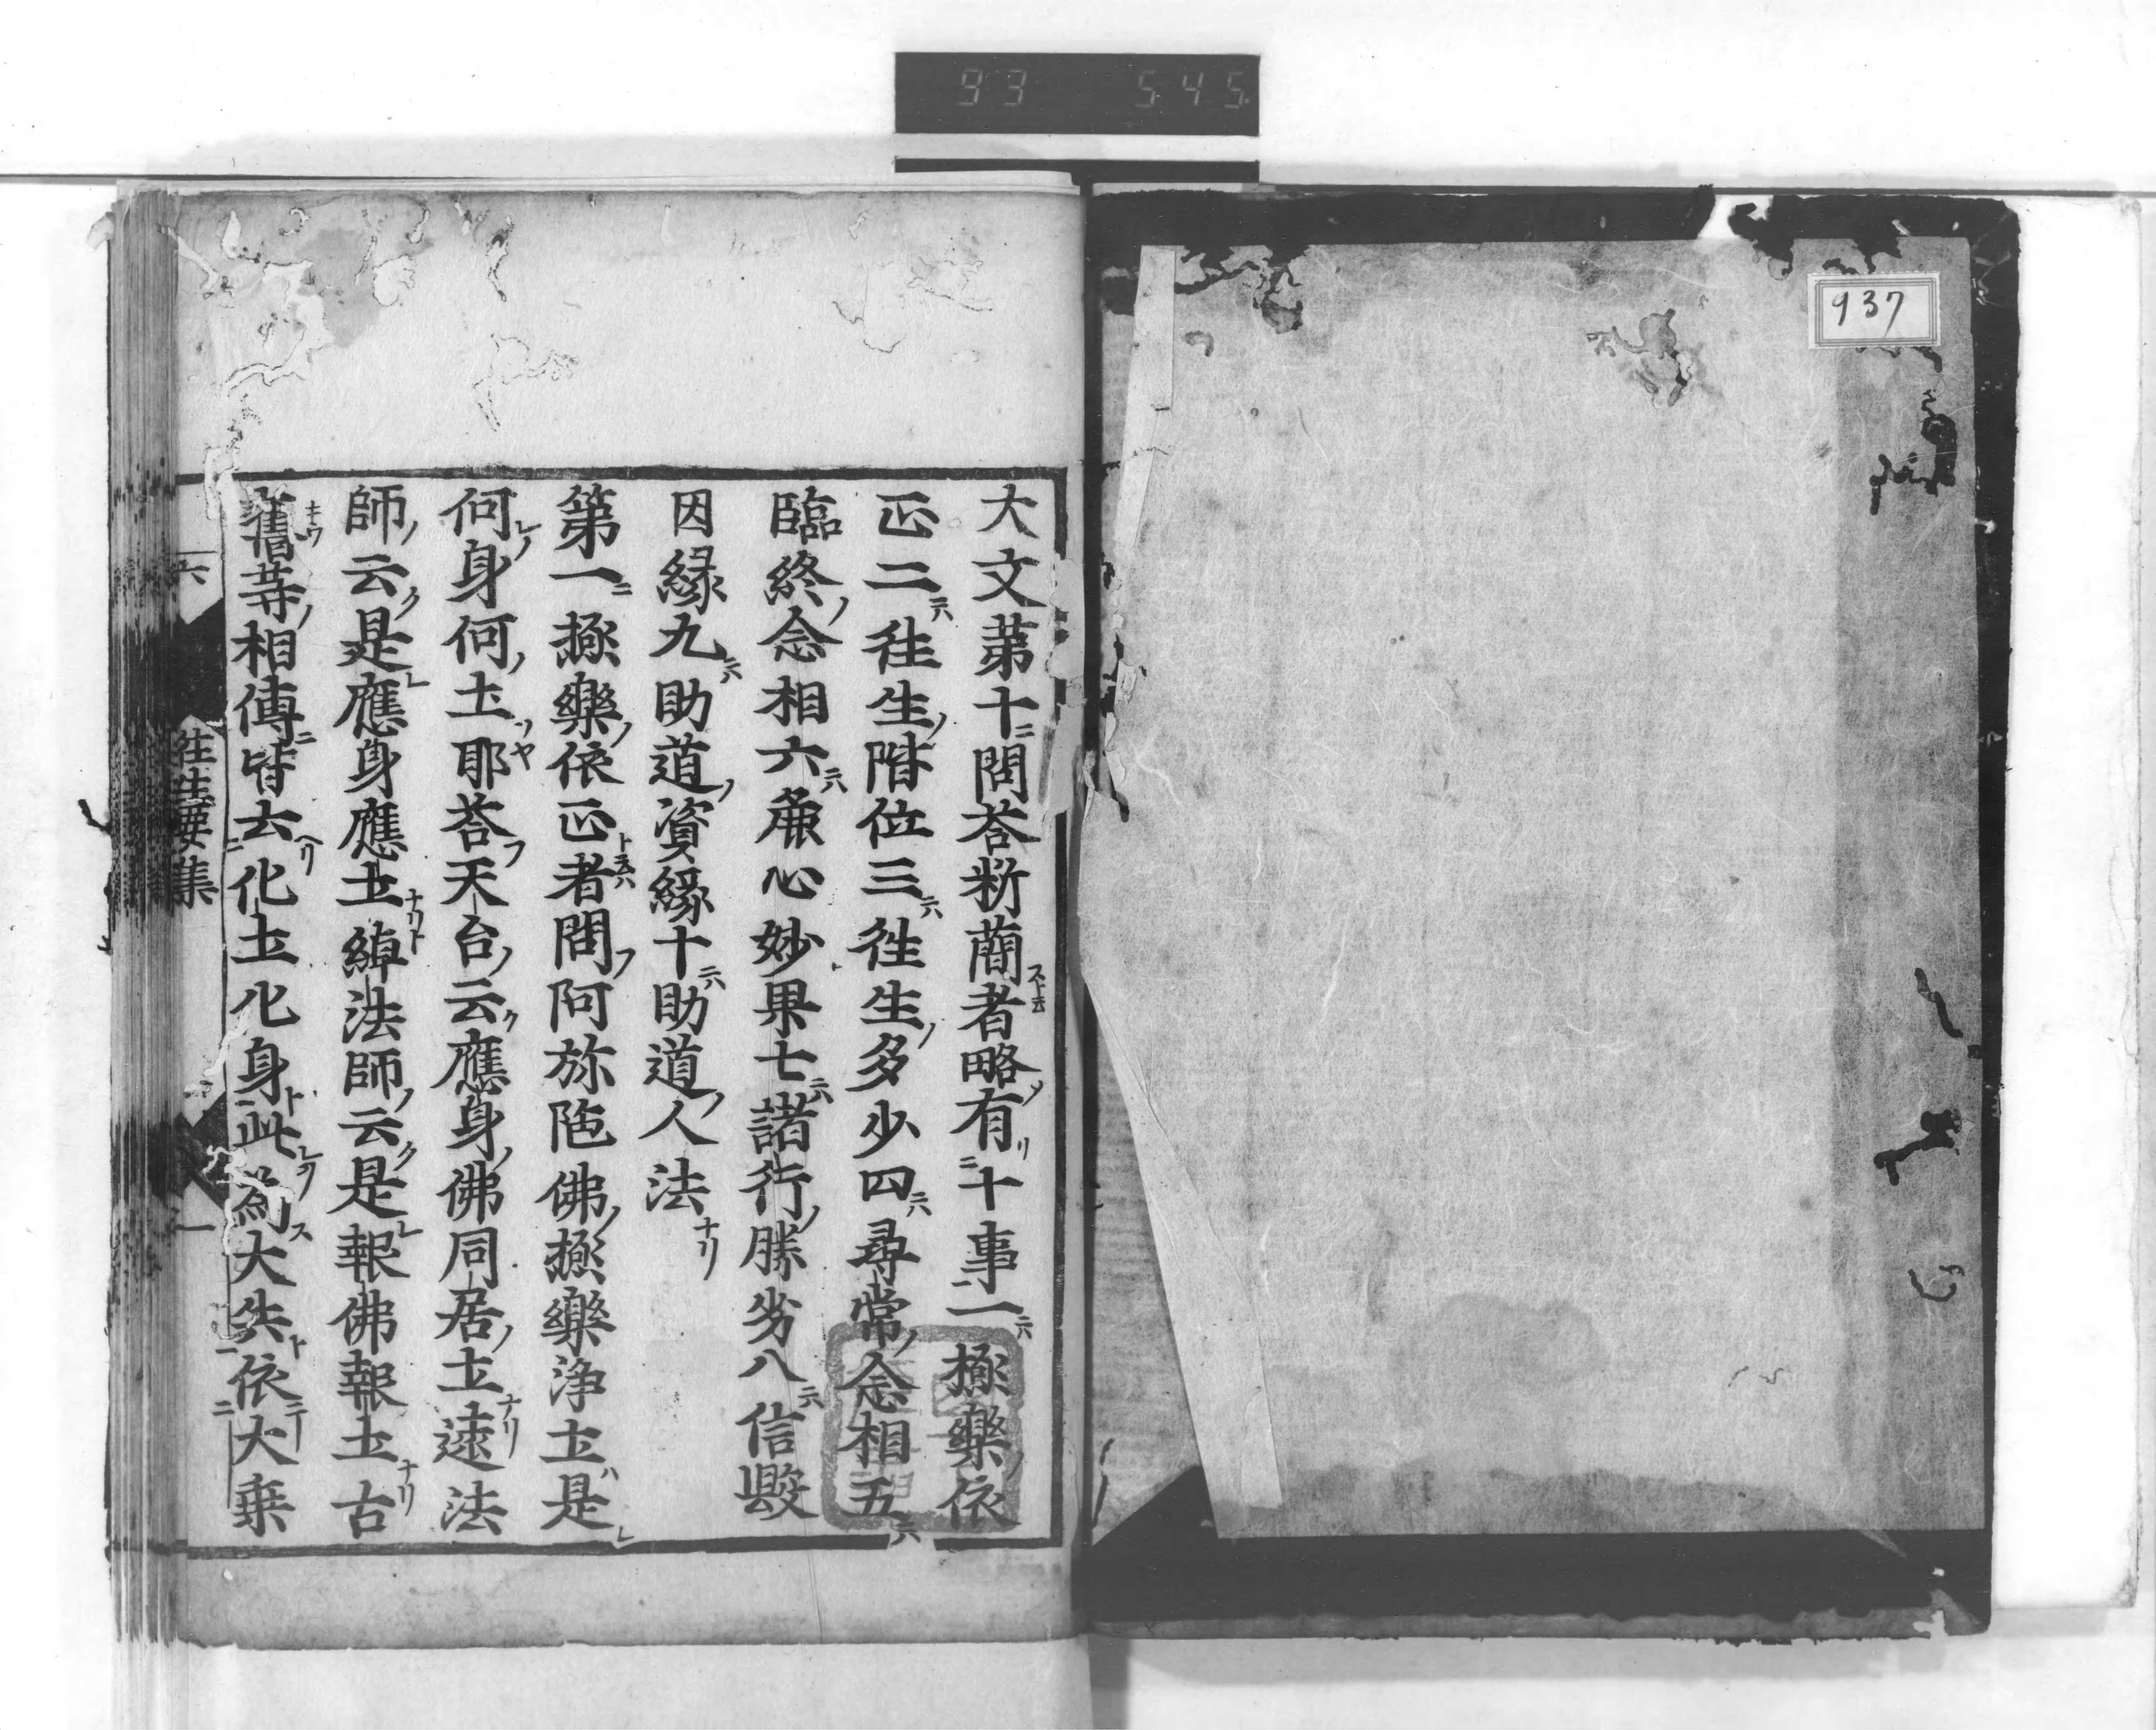 93 545
937
大文苐十問荅析蕳者略有十事一極樂依
正二徃生階位三徃生多少四尋常念相五
臨終念相六麁心妙果七諸行勝劣八信毀
因縁九助道資縁十助道人法
第一極樂依正者問阿弥陁佛極樂浄土是
何身何土耶荅天台云應身佛同居土遠法
師云是應身應土綽法師云是報佛報土古
舊等相傳皆云化土化身此為大失依大乗
六 徃生要集 一